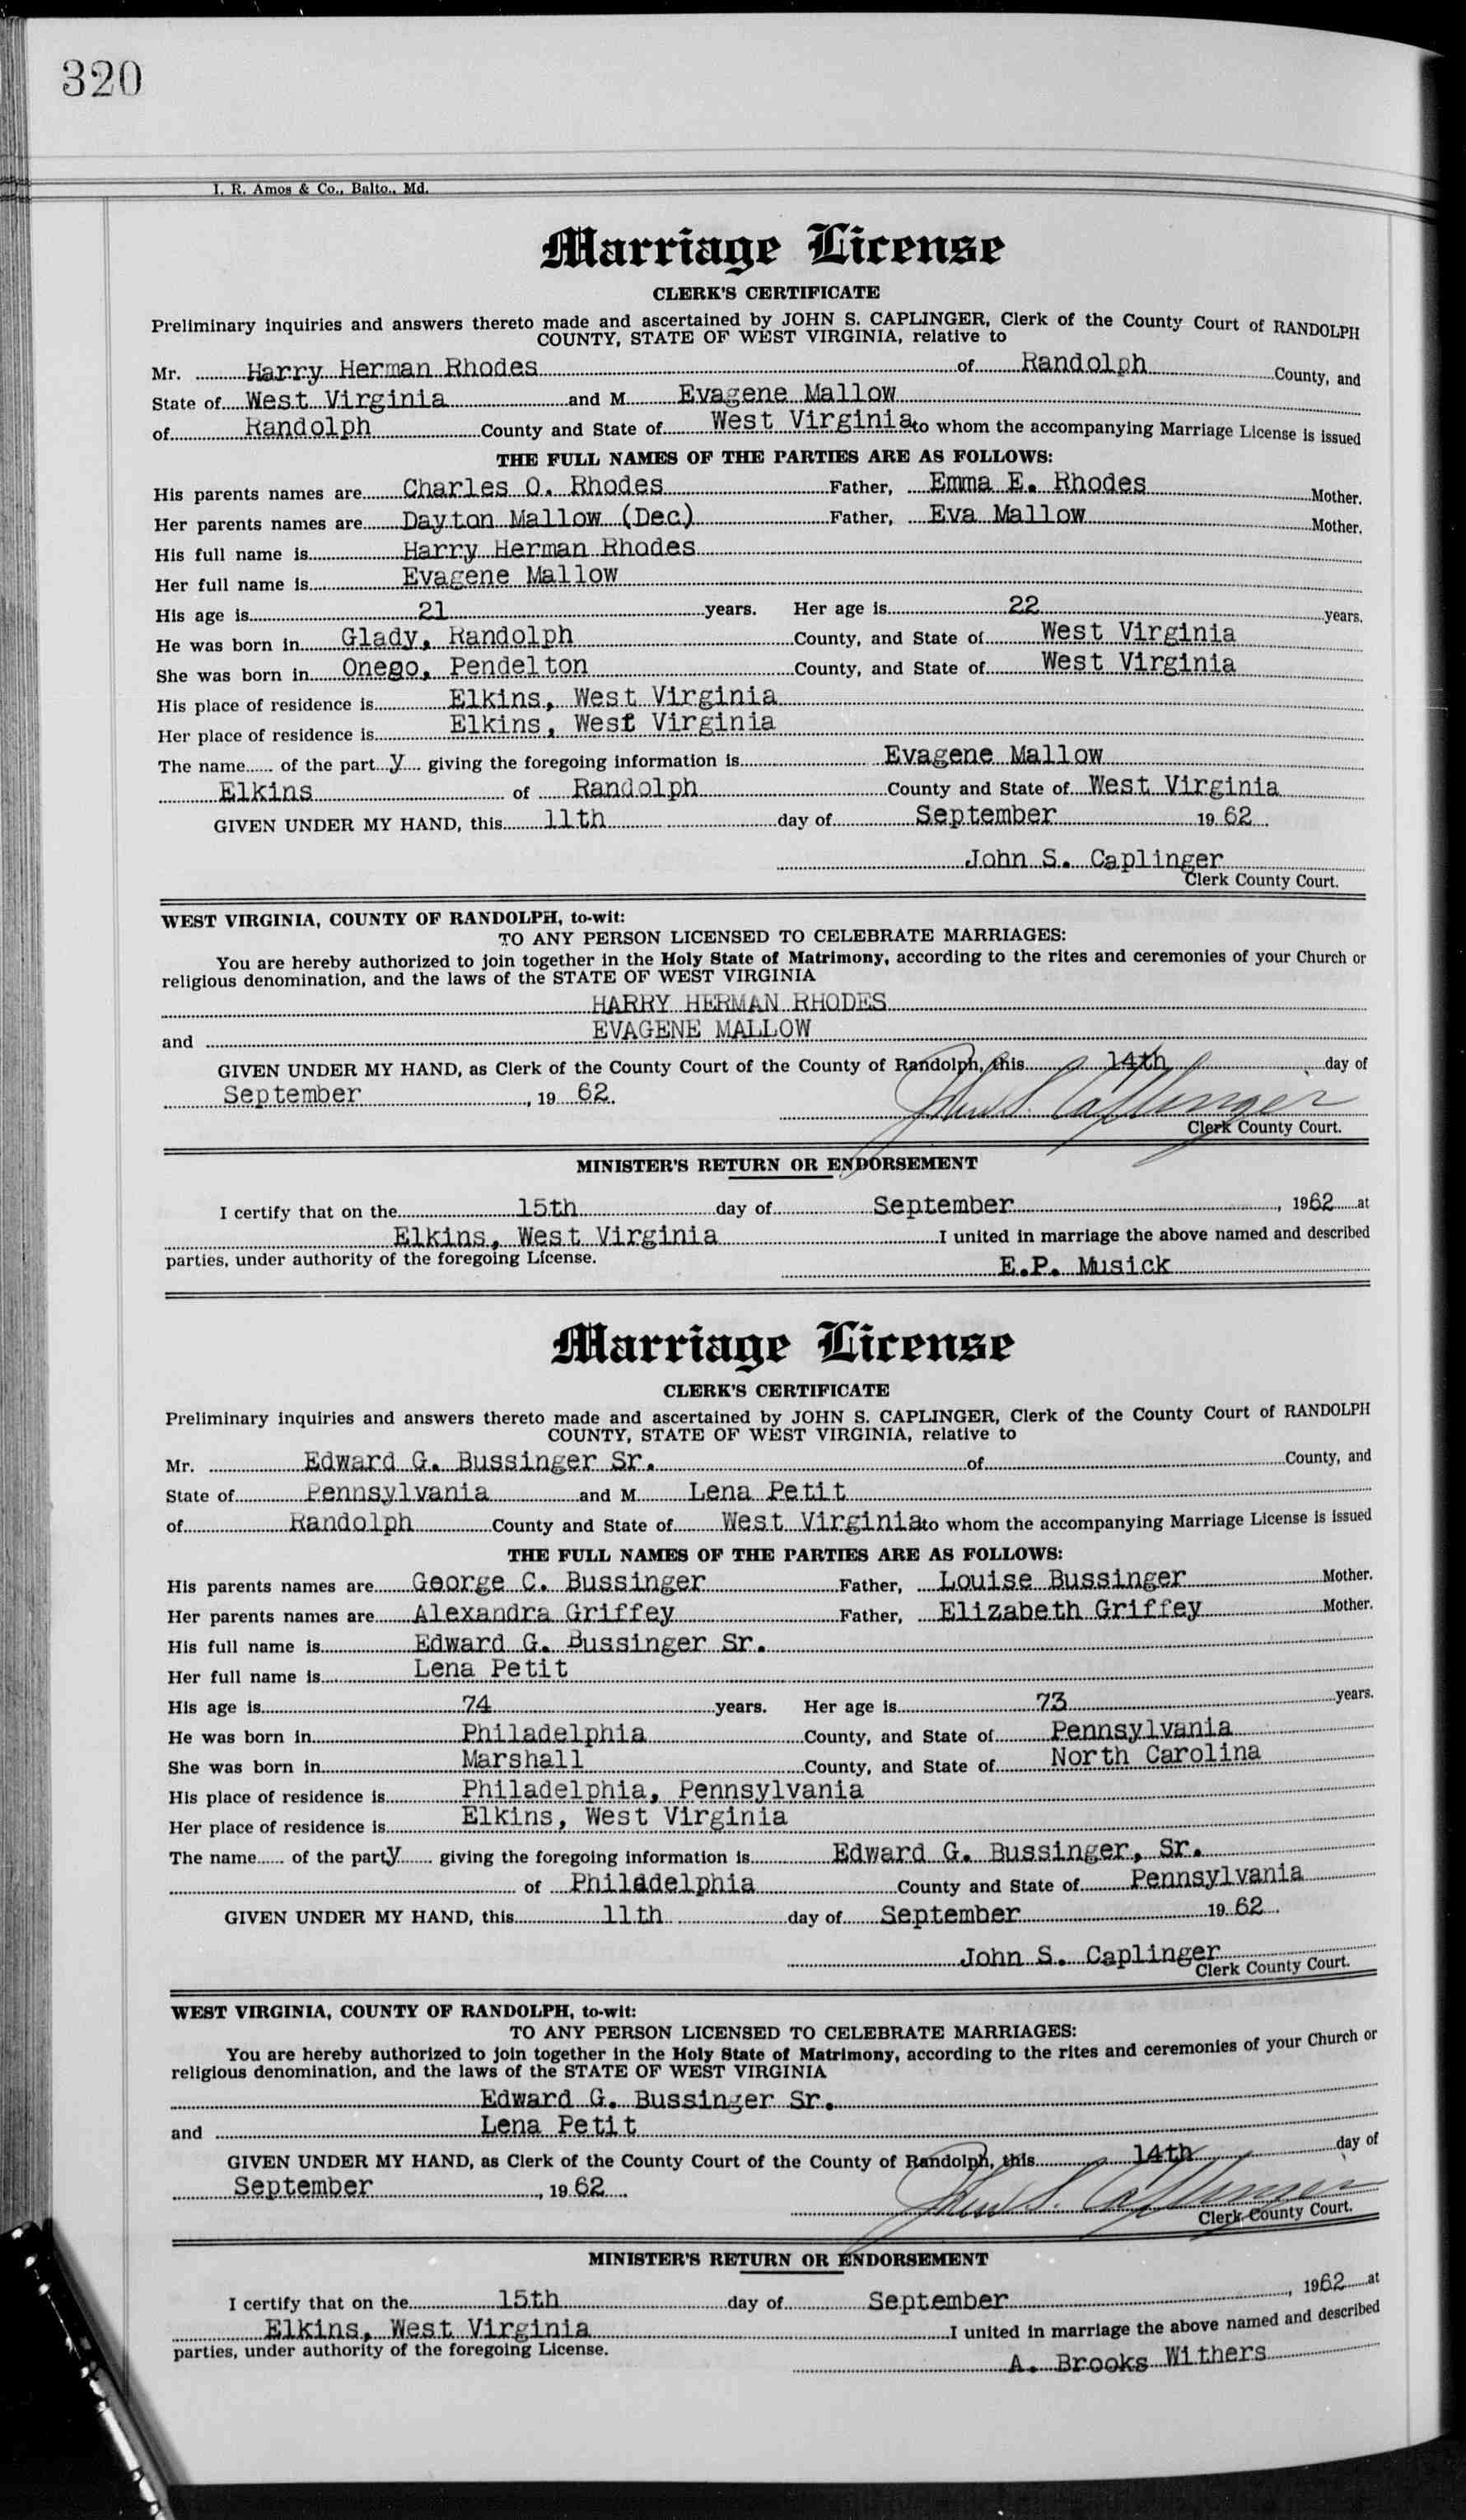 320
I. R. Amos & Co., Balto., Md.
Marriage License
CLERK'S CERTIFICATE
Preliminary inquiries and answers thereto made and ascertained by JOHN S. CAPLINGER, Clerk of the County Court of RANDOLPH
COUNTY, STATE OF WEST VIRGINIA, relative to
Mr. Harry Herman Rhodes of Randolph County, and
State of West Virginia and M Evagene Mallow
of Randolph County and State of West Virginia to whom the accompanying Marriage License is issued
THE FULL NAMES OF THE PARTIES ARE AS FOLLOWS:
His parents names are Charles O. Rhodes Father, Emma E. Rhodes Mother.
Her parents names are Dayton Mallow (Dec) Father, Eva Mallow Mother.
His full name is Harry Herman Rhodes
Her full name is Evagene Mallow
His age is 21 years. Her age is 22 years.
He was born in Glady, Randolph County, and State of West Virginia
She was born in Onego, Pendelton County, and State of West Virginia
His place of residence is Elkins, West Virginia
Her place of residence is Elkins, West Virginia
The name of the part y giving the foregoing information is Evagene Mallow
Elkins of Randolph County and State of West Virginia
GIVEN UNDER MY HAND, this 11th day of September 19 62
John S. Caplinger
Clerk County Court.
WEST VIRGINIA, COUNTY OF RANDOLPH, to-wit:
TO ANY PERSON LICENSED TO CELEBRATE MARRIAGES:
You are hereby authorized to join together in the Holy State of Matrimony, according to the rites and ceremonies of your Church or
religious denomination, and the laws of the STATE OF WEST VIRGINIA
HARRY HERMAN RHODES
and EVAGENE MALLOW
GIVEN UNDER MY HAND, as Clerk of the County Court of the County of Randolph, this 14th day of
September, 19 62.
John S. Caplinger
Clerk County Court.
MINISTER'S RETURN OR ENDORSEMENT
I certify that on the 15th day of September, 1962 at
Elkins, West Virginia I united in marriage the above named and described
parties, under authority of the foregoing License.
E.P. Musick
Marriage License
CLERK'S CERTIFICATE
Preliminary inquiries and answers thereto made and ascertained by JOHN S. CAPLINGER, Clerk of the County Court of RANDOLPH
COUNTY, STATE OF WEST VIRGINIA, relative to
Mr. Edward G. Bussinger Sr. of County, and
State of Pennsylvania and M Lena Petit
of Randolph County and State of West Virginia to whom the accompanying Marriage License is issued
THE FULL NAMES OF THE PARTIES ARE AS FOLLOWS:
His parents names are George C. Bussinger Father, Louise Bussinger Mother.
Her parents names are Alexandra Griffey Father, Elizabeth Griffey Mother.
His full name is Edward G. Bussinger Sr.
Her full name is Lena Petit
His age is 74 years. Her age is 73 years.
He was born in Philadelphia County, and State of Pennsylvania
She was born in Marshall County, and State of North Carolina
His place of residence is Philadelphia, Pennsylvania
Her place of residence is Elkins, West Virginia
The name of the party giving the foregoing information is Edward G. Bussinger, Sr.
of Philadelphia County and State of Pennsylvania
GIVEN UNDER MY HAND, this 11th day of September 19 62
John S. Caplinger
Clerk County Court.
WEST VIRGINIA, COUNTY OF RANDOLPH, to-wit:
TO ANY PERSON LICENSED TO CELEBRATE MARRIAGES:
You are hereby authorized to join together in the Holy State of Matrimony, according to the rites and ceremonies of your Church or
religious denomination, and the laws of the STATE OF WEST VIRGINIA
Edward G. Bussinger Sr.
and Lena Petit
GIVEN UNDER MY HAND, as Clerk of the County Court of the County of Randolph, this 14th day of
September, 19 62
John S. Caplinger
Clerk County Court.
MINISTER'S RETURN OR ENDORSEMENT
I certify that on the 15th day of September, 1962 at
Elkins, West Virginia I united in marriage the above named and described
parties, under authority of the foregoing License.
A. Brooks Withers